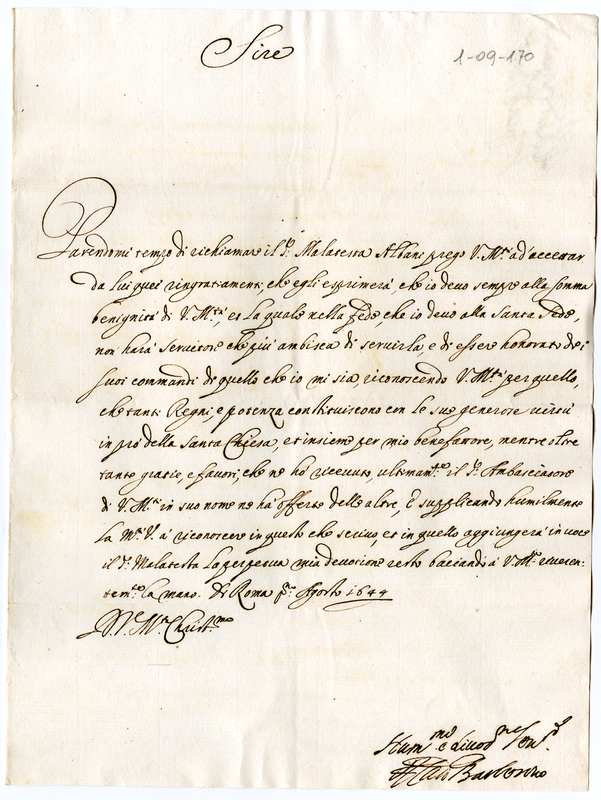 Sire
1-09-170
Parendomi tempo di richiamare il S.r Malatesta Albani prego V. M.tà ad accettar
da lui quei ringratiamenti, che egli esprimerà che io devo sempre alla somma
benignità di V. M.tà, et la quale nella fede, che io devo alla Santa Sede,
non harà servitore che più ambisca di servirla, e di essere honorato de i
suoi commandi di quello che io mi sia, riconoscendo V. M.tà per quello,
che tanti Regni, e potenza constituiscono con le sue generose virtù
in prò della Santa Chiesa, et insieme per mio benefattore, mentre oltre
tante gratie, e favori, che ne hò ricevuto, ultimam.te il S.r Ambasciatore
di V. M.tà in suo nome ne hà offerto delle altre, E supplicando humilmente
la M.tà V.a à riconoscere in questo che scrivo, et in quello aggiungerà in voce
il S.r Malatesta la perpetua mia devotione resto baciando à V. M.tà riveren:
tem.te la mano. Di Roma p.mo Agosto 1644
D. V. M.tà Christ.ma
Hum.mo e divot.mo ser.re
Barberino